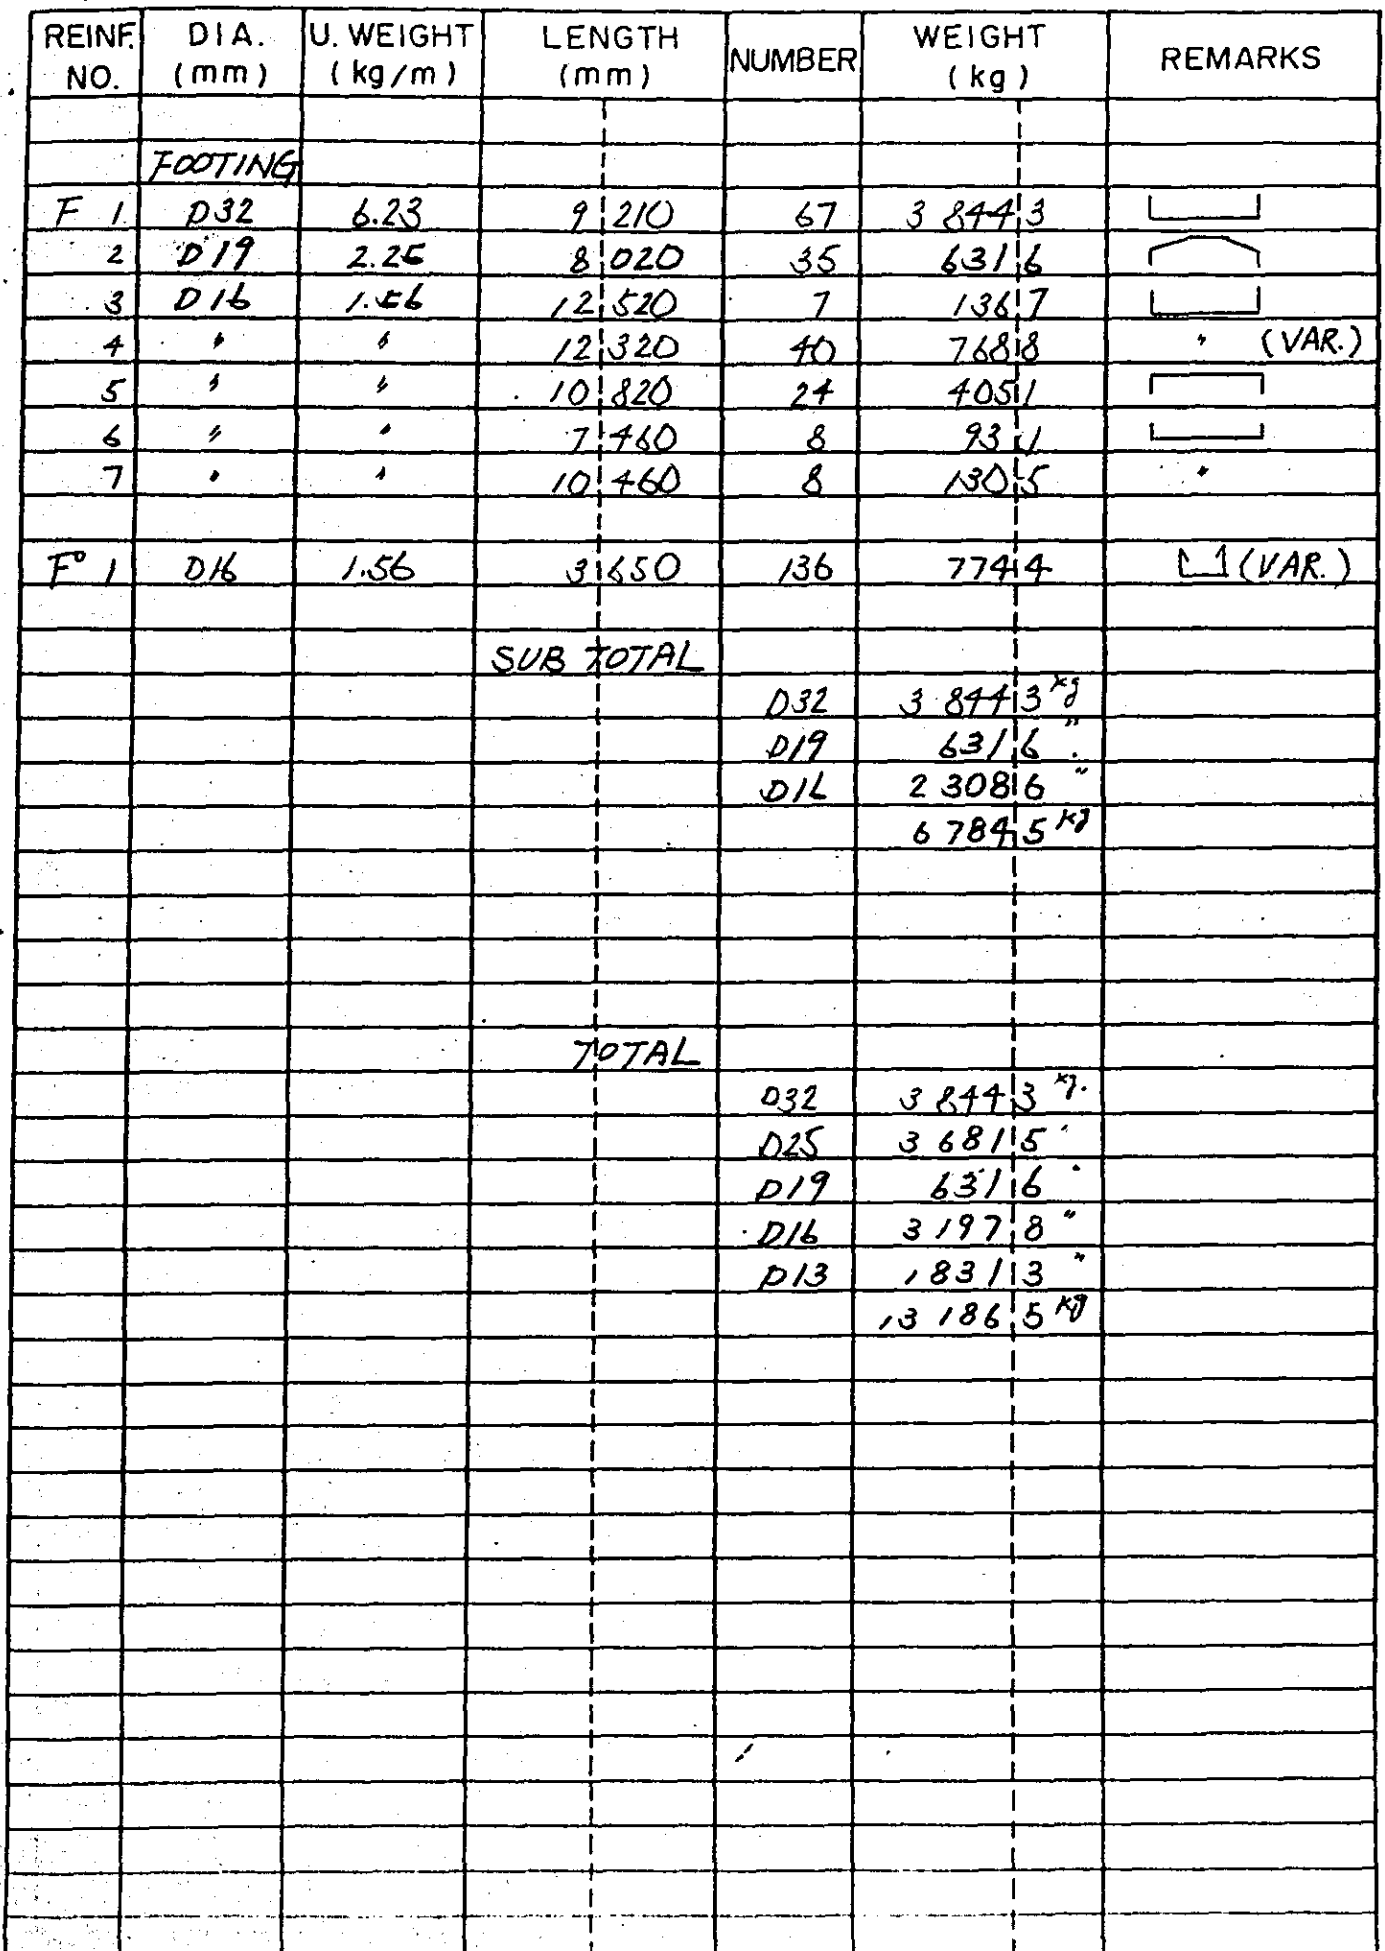 REINF. NO. DIA. (mm) U. WEIGHT (kg/m) LENGTH (mm) NUMBER WEIGHT (kg) REMARKS
FOOTING
F 1 D32 6.23 9 210 67 3 844 3
2 D19 2.25 8 020 35 631 6
3 D16 1.56 12 520 7 136 7
4 〃 〃 12 320 40 768 8 〃 (VAR.)
5 〃 〃 10 820 24 405 1
6 〃 〃 7 460 8 93 1
7 〃 〃 10 460 8 130 5 〃
F° 1 D16 1.56 3 650 136 774 4 (VAR.)
SUB TOTAL
D32 3 844 3 kg
D19 631 6 〃
D16 2 308 6 〃
6 784 5 kg
TOTAL
D32 3 844 3 kg.
D25 3 681 5 〃
D19 631 6 〃
D16 3 197 8 〃
D13 1 831 3 〃
13 186 5 kg